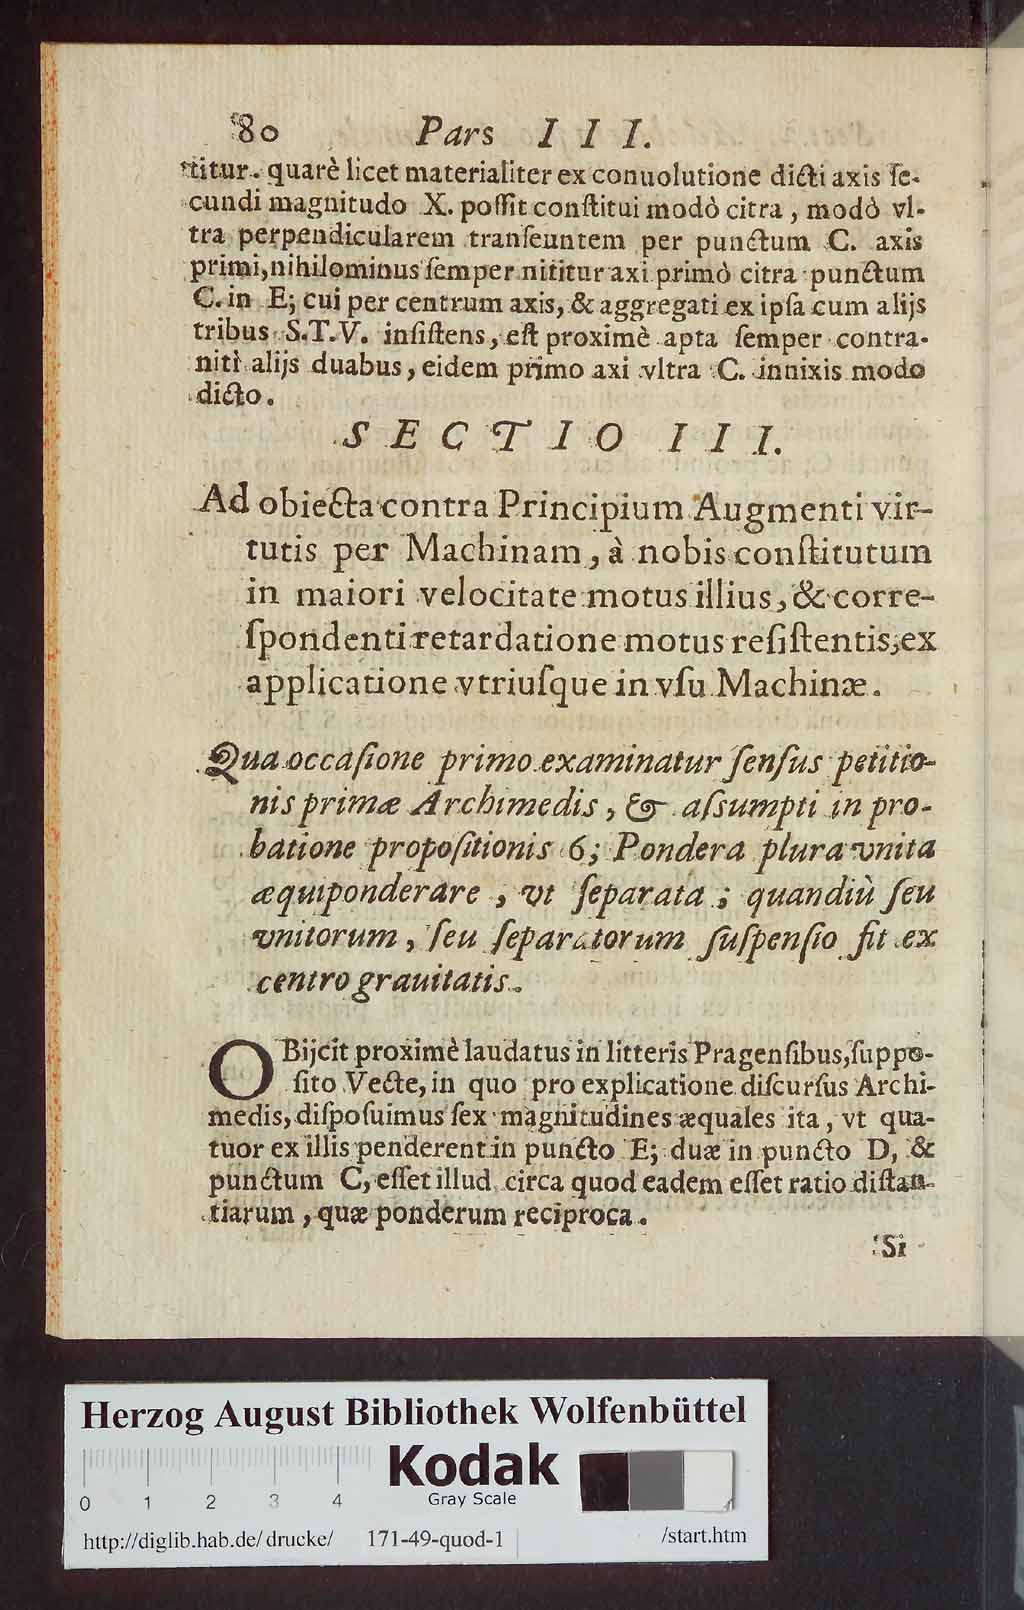 80 Pars III.
titur. quarè licet materialiter ex conuolutione dicti axis ſe-
cundi magnitudo X. poſſit conſtitui modò citra, modò vl-
tra perpendicularem tranſeuntem per punctum C. axis
primi, nihilominus ſemper nititur axi primò citra punctum
C. in E; cui per centrum axis, & aggregati ex ipſa cum alijs
tribus S.T.V. inſiſtens, eſt proximè apta ſemper contra-
niti alijs duabus, eidem primo axi vltra C. innixis modo
dicto.
SECTIO III.
Ad obiecta contra Principium Augmenti vir-
tutis per Machinam, à nobis conſtitutum
in maiori velocitate motus illius, & corre-
ſpondenti retardatione motus reſiſtentis, ex
applicatione vtriuſque in vſu Machinæ.
Qua occaſione primo examinatur ſenſus petitio-
nis primæ Archimedis, & aſsumpti in pro-
batione propoſitionis 6; Pondera plura vnita
æquiponderare, vt ſeparata; quandiù ſeu
vnitorum, ſeu ſeparatorum ſuſpenſio fit ex
centro grauitatis.
OBijcit proximè laudatus in litteris Pragenſibus, ſuppo-
ſito Vecte, in quo pro explicatione diſcurſus Archi-
medis, diſpoſuimus ſex magnitudines æquales ita, vt qua-
tuor ex illis penderent in puncto E; duæ in puncto D, &
punctum C, eſſet illud circa quod eadem eſſet ratio diſtan-
tiarum, quæ ponderum reciproca.
Si
Herzog August Bibliothek Wolfenbüttel
Kodak
0 1 2 3 4 Gray Scale
http://diglib.hab.de/drucke/ 171-49-quod-1 /start.htm